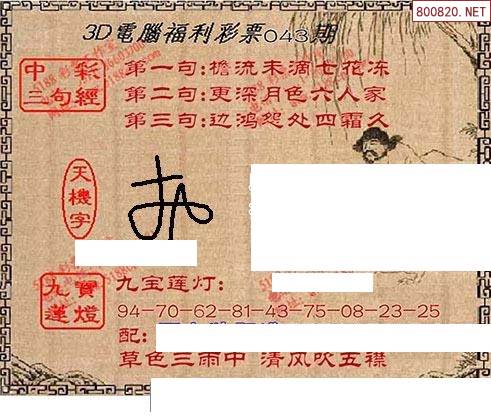 800820.NET
3D電腦福利彩票043期
中彩三句經
第一句:檐流未滴七花冻
第二句:更深月色六人家
第三句:边鸿怨处四霜久
天機字
九寶蓮燈
九宝莲灯:
94-70-62-81-43-75-08-23-25
配:
草色三雨中 清风吹五襟